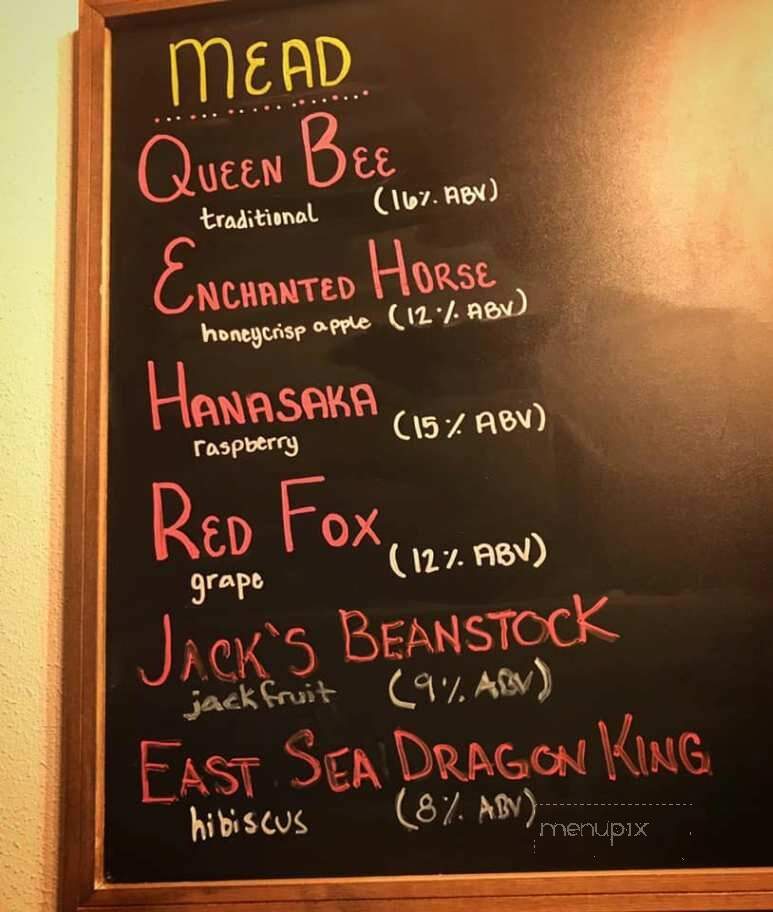 MEAD
QUEEN BEE
traditional (16% ABV)
ENCHANTED HORSE
honeycrisp apple (12% ABV)
HANASAKA
raspberry (15% ABV)
RED FOX
grape (12% ABV)
JACK'S BEANSTOCK
jackfruit (9% ABV)
EAST SEA DRAGON KING
hibiscus (8% ABV)
menupix